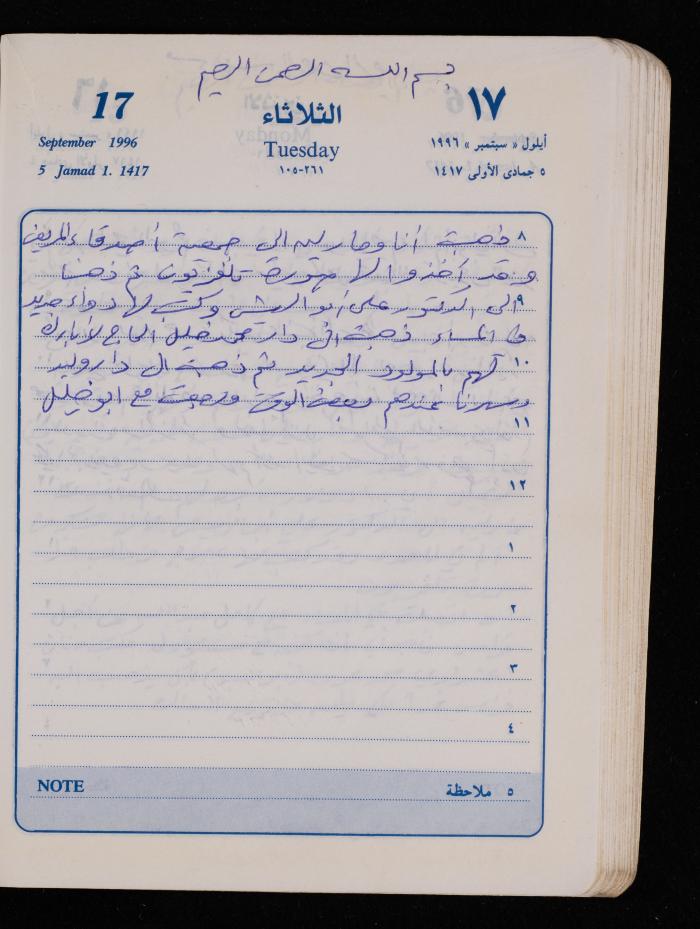 بسم الله الرحمن الرحيم
17 الثلاثاء ١٧
September 1996 Tuesday أيلول « سبتمبر » ١٩٩٦
5 Jamad 1. 1417 ٢٦١-١٠٥ ٥ جمادى الأولى ١٤١٧
٨ ذهبت أنا ومارلين الى جمعية أصدقاء المريض
وقد أخذوا لها صورة تلفزيون ثم ذهبنا
٩ الى الدكتور علي أبو الريش وكتب لها دواء جديد
في المساء ذهبت الى دار محمد خليل الحاج لأبارك
١٠ لهم بالمولود الجديد ثم ذهبت الى دار وليد
وسهرنا عندهم بعض الوقت ورجعت مع ابو خليل
١١
١٢
١
٢
٣
٤
NOTE ٥ ملاحظة